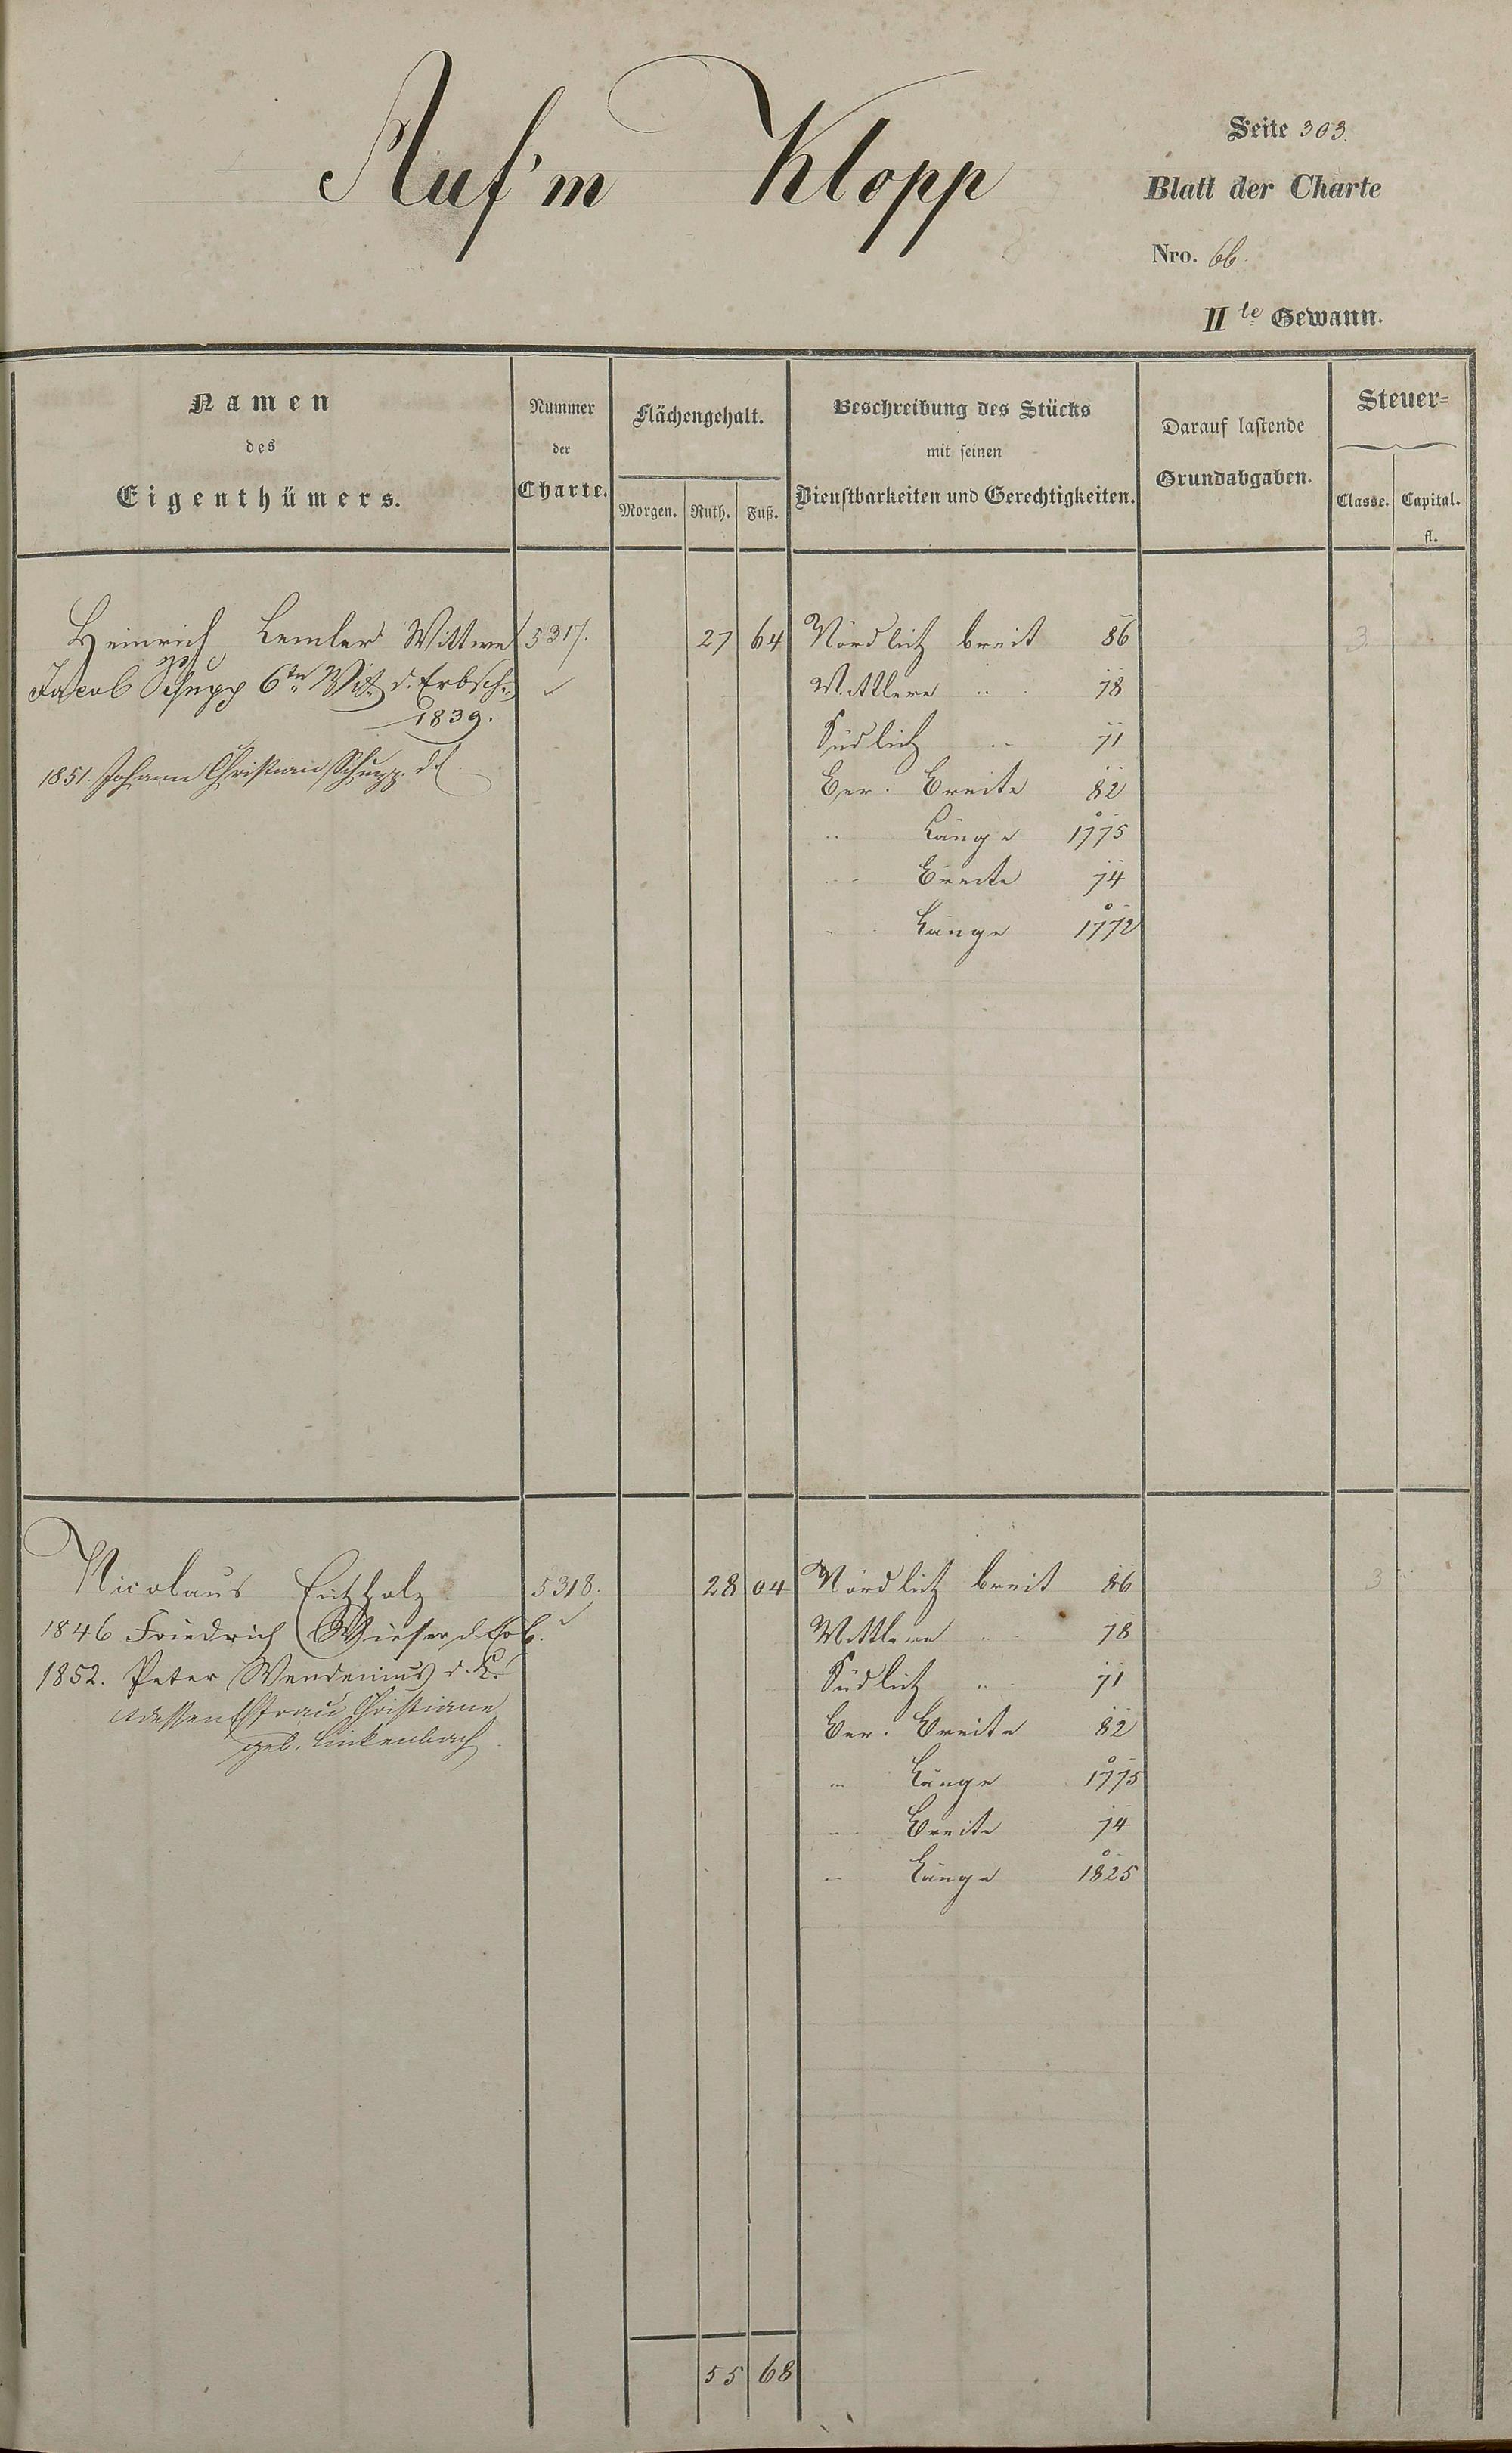 Auf'm Klopp
Seite 303.
Blatt der Charte
Nro. 66.
IIte Gewann.
Namen
des
Eigenthümers.
Nummer
der
Charte.
Flächengehalt.
Morgen. Ruth. Fuß.
Beschreibung des Stücks
mit seinen
Dienstbarkeiten und Gerechtigkeiten.
Darauf lastende
Grundabgaben.
Steuer=
Classe. Capital.
fl.
Heinrich Lemler Wittwe 5317. 27 64 Nördlich breit 86 3
Jacob Schupp 6ten Wit. d. Erbsch. Mittlere .. 78
1839. Südlich .. 71
1851. Johann Christian Schupp. d. Ber. Breite 82
.. Länge 1775
.. Breite 74
.. Länge 1772
Nicolaus 5318. 28 04 Nördlich breit 86 3
1846 Friedrich Wieser Mittlere .. 78
1852. Peter Wendenius d. K. Südlich .. 71
dessen Ehfrau Christiane
geb. Linkenbach Ber. Breite 82
.. Länge 1775
.. Breite 74
.. Länge 1825
55 68